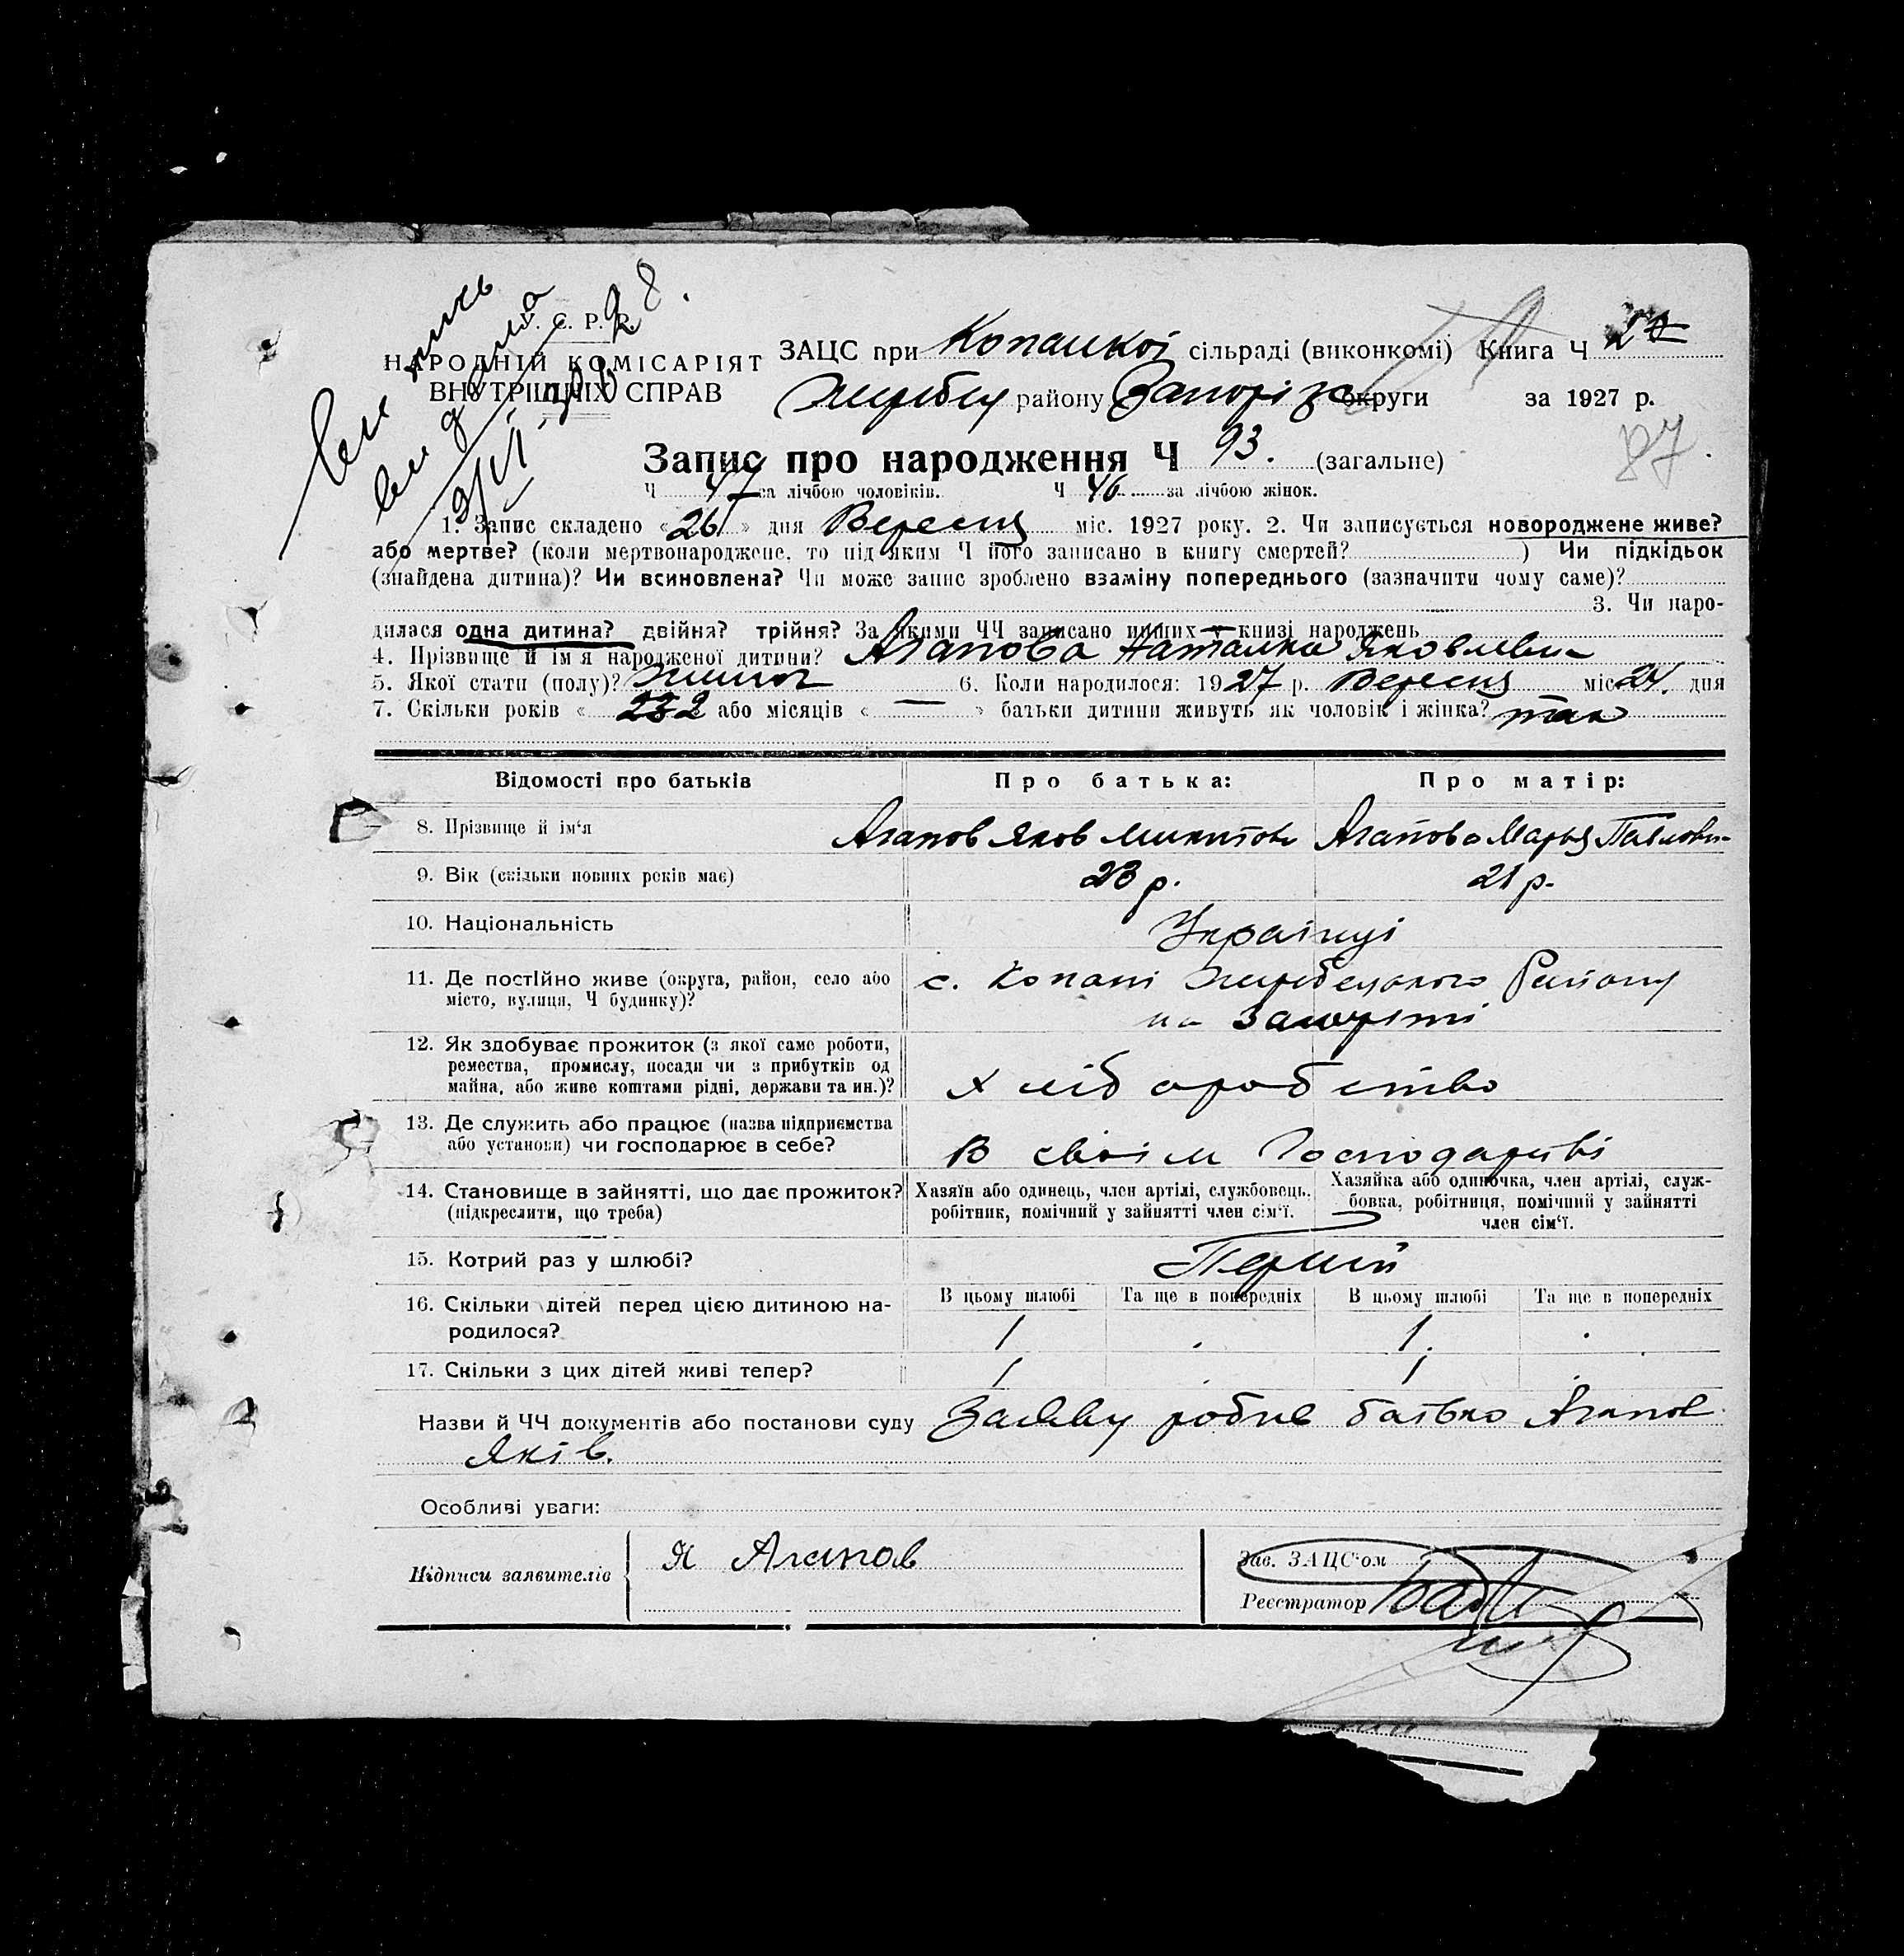 Виписъ
видана
9/VI-30
28.
У. С. Р. Р.
НАРОДНІЙ КОМІСАРІЯТ
ВНУТРІШНІХ СПРАВ
ЗАЦС при Копанкої сільраді (виконкомі) Книга Ч
району Запоріж округи за 1927 р.
87.
Запис про народження Ч 93. (загальне)
Ч 47 за лічбою чоловіків. Ч 46 за лічбою жінок.
1. Запис складено «26» дня Вересня міс. 1927 року. 2. Чи записується новороджене живе?
або мертве? (коли мертвонароджене, то під яким Ч його записано в книгу смертей? ) Чи підкідьок
(знайдена дитина)? Чи всиновлена? Чи може запис зроблено взаміну попереднього (зазначити чому саме)?
3. Чи наро-
дилася одна дитина? двійня? трійня? За якими ЧЧ записано инших у книзі народжень
4. Прізвище й ім'я народженої дитини? Агапова Наталка Яковлевн
5. Якої стати (полу)? 6. Коли народилося: 1927 р. Вересня міс 24. дня
7. Скільки років « 2 або місяців « — » батьки дитини живуть як чоловік і жінка? так
Відомості про батьків Про батька: Про матір:
8. Прізвище й ім'я Агапов Яков Микитов Агапова Марья Павловн
9. Вік (скільки повних років має) 23 р. 21 р.
10. Національність Українці
11. Де постійно живе (округа, район, село або
місто, вулиця, Ч будинку)?
с. Копані Жеребецького Району
на Запоріжі
12. Як здобуває прожиток (з якої саме роботи,
ремества, промислу, посади чи з прибутків од
майна, або живе коштами рідні, держави та ин.)?
Хліборобство
13. Де служить або працює (назва підприємства
або установи) чи господарює в себе?
В своїм Господарстві
14. Становище в зайнятті, що дає прожиток?
(підкреслити, що треба)
Хазяїн або одинець, член артілі, службовець,
робітник, помічний у зайнятті член сім'ї.
Хазяйка або одиночка, член артілі, служ-
бовка, робітниця, помічний у зайнятті
член сім'ї.
15. Котрий раз у шлюбі? Перший
16. Скільки дітей перед цією дитиною на-
родилося?
В цьому шлюбі Та ще в попередніх В цьому шлюбі Та ще в попередніх
1 . 1. .
17. Скільки з цих дітей живі тепер? 1 1
Назви й ЧЧ документів або постанови суду Заяву робив батько Агапов
Яків.
Особливі уваги:
Підписи заявителів Я Агапов
Зав. ЗАЦС'ом
Реєстратор